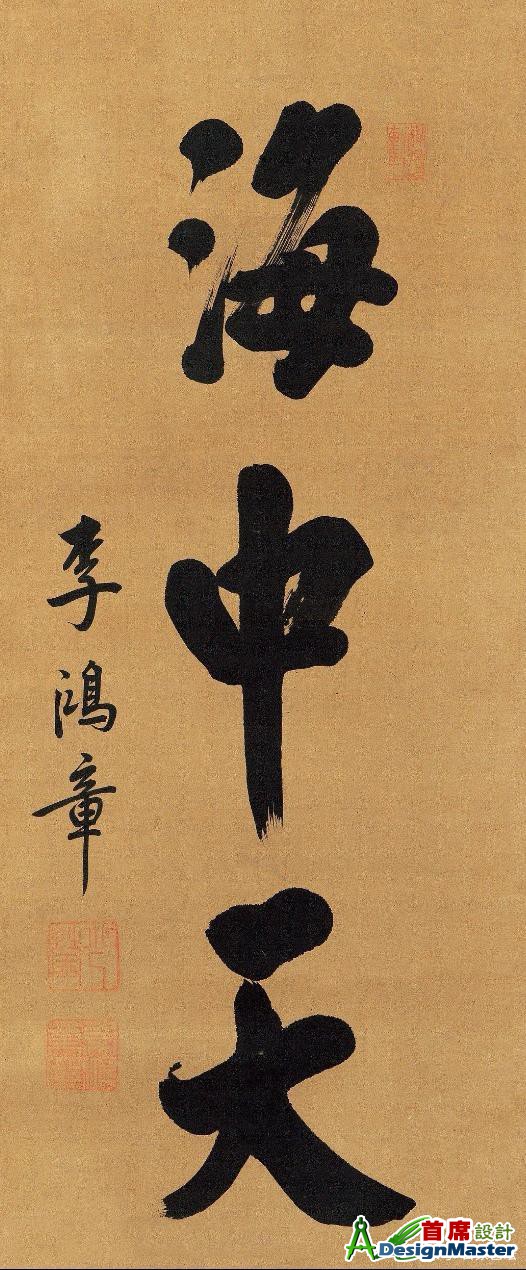 海中天
李鴻章
首席設計
DesignMaster